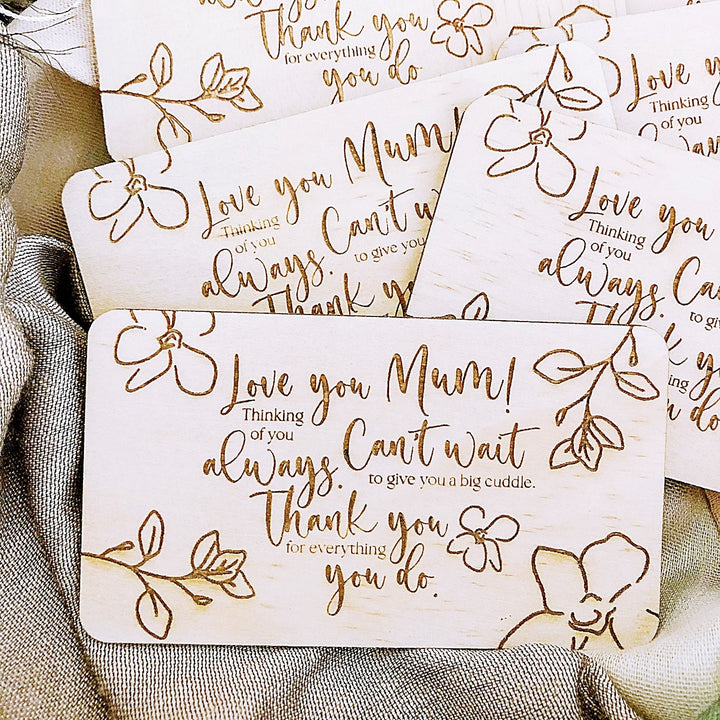 Thank you
for everything
you do
Love you Mum!
Thinking
of you
always. Can't w
to give you
Thank y
Love y
Thinking
of you
Love you
Thinking
of you
always. Ca
to gi
Love you Mum!
Thinking
of you
always. Can't wait
to give you a big cuddle.
Thank you
for everything
you do.